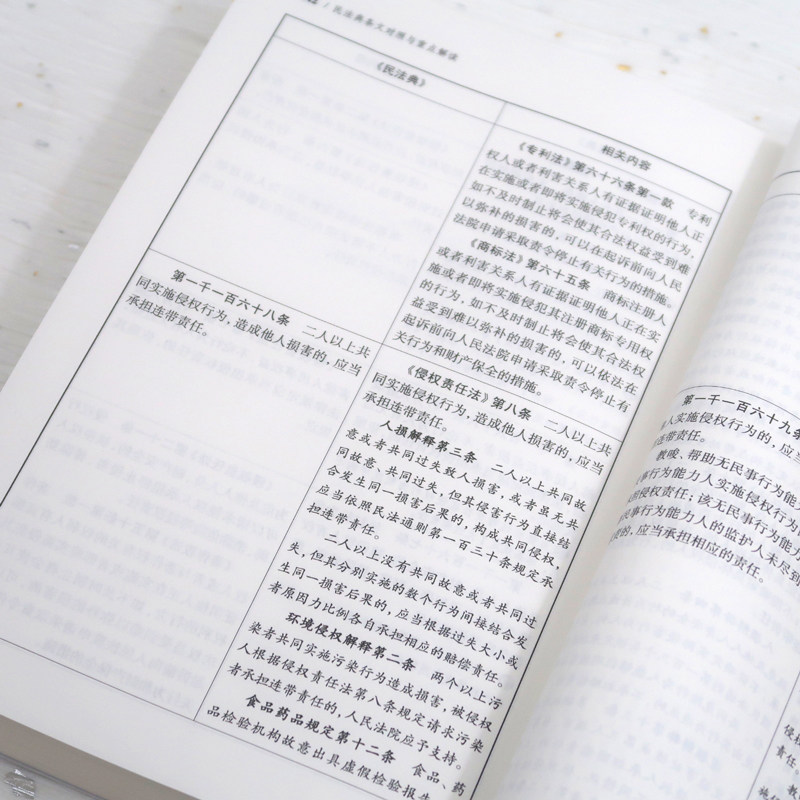 民法典条文对照与重点解读
《民法典》
相关内容
《专利法》第六十六条第一款 专利
权人或者利害关系人有证据证明他人正
在实施或者即将实施侵犯专利权的行为,
如不及时制止将会使其合法权益受到难
以弥补的损害的,可以在起诉前向人民
法院申请采取责令停止有关行为的措施。
《商标法》第六十五条 商标注册人
或者利害关系人有证据证明他人正在实
施或者即将实施侵犯其注册商标专用权
的行为,如不及时制止将会使其合法权
益受到难以弥补的损害的,可以依法在
起诉前向人民法院申请采取责令停止有
关行为和财产保全的措施。
第一千一百六十八条 二人以上共
同实施侵权行为,造成他人损害的,应当
承担连带责任。
《侵权责任法》第八条 二人以上共
同实施侵权行为,造成他人损害的,应当
承担连带责任。
人损解释第三条 二人以上共同故
意或者共同过失致人损害,或者虽无共
同故意、共同过失,但其侵害行为直接结
合发生同一损害后果的,构成共同侵权,
应当依照民法通则第一百三十条规定承
担连带责任。
二人以上没有共同故意或者共同过
失,但其分别实施的数个行为间接结合发
生同一损害后果的,应当根据过失大小或
者原因力比例各自承担相应的赔偿责任。
环境侵权解释第二条 两个以上污
染者共同实施污染行为造成损害,被侵权
人根据侵权责任法第八条规定请求污染
者承担连带责任的,人民法院应予支持。
食品药品规定第十二条 食品、药
品检验机构故意出具虚假检验报告
第一千一百六十九条
人实施侵权行为的,应当
连带责任。
教唆、帮助无民事行为能力
事行为能力人实施侵权行为
侵权责任;该无民事行为能力
民事行为能力人的监护人未尽到
的,应当承担相应的责任。